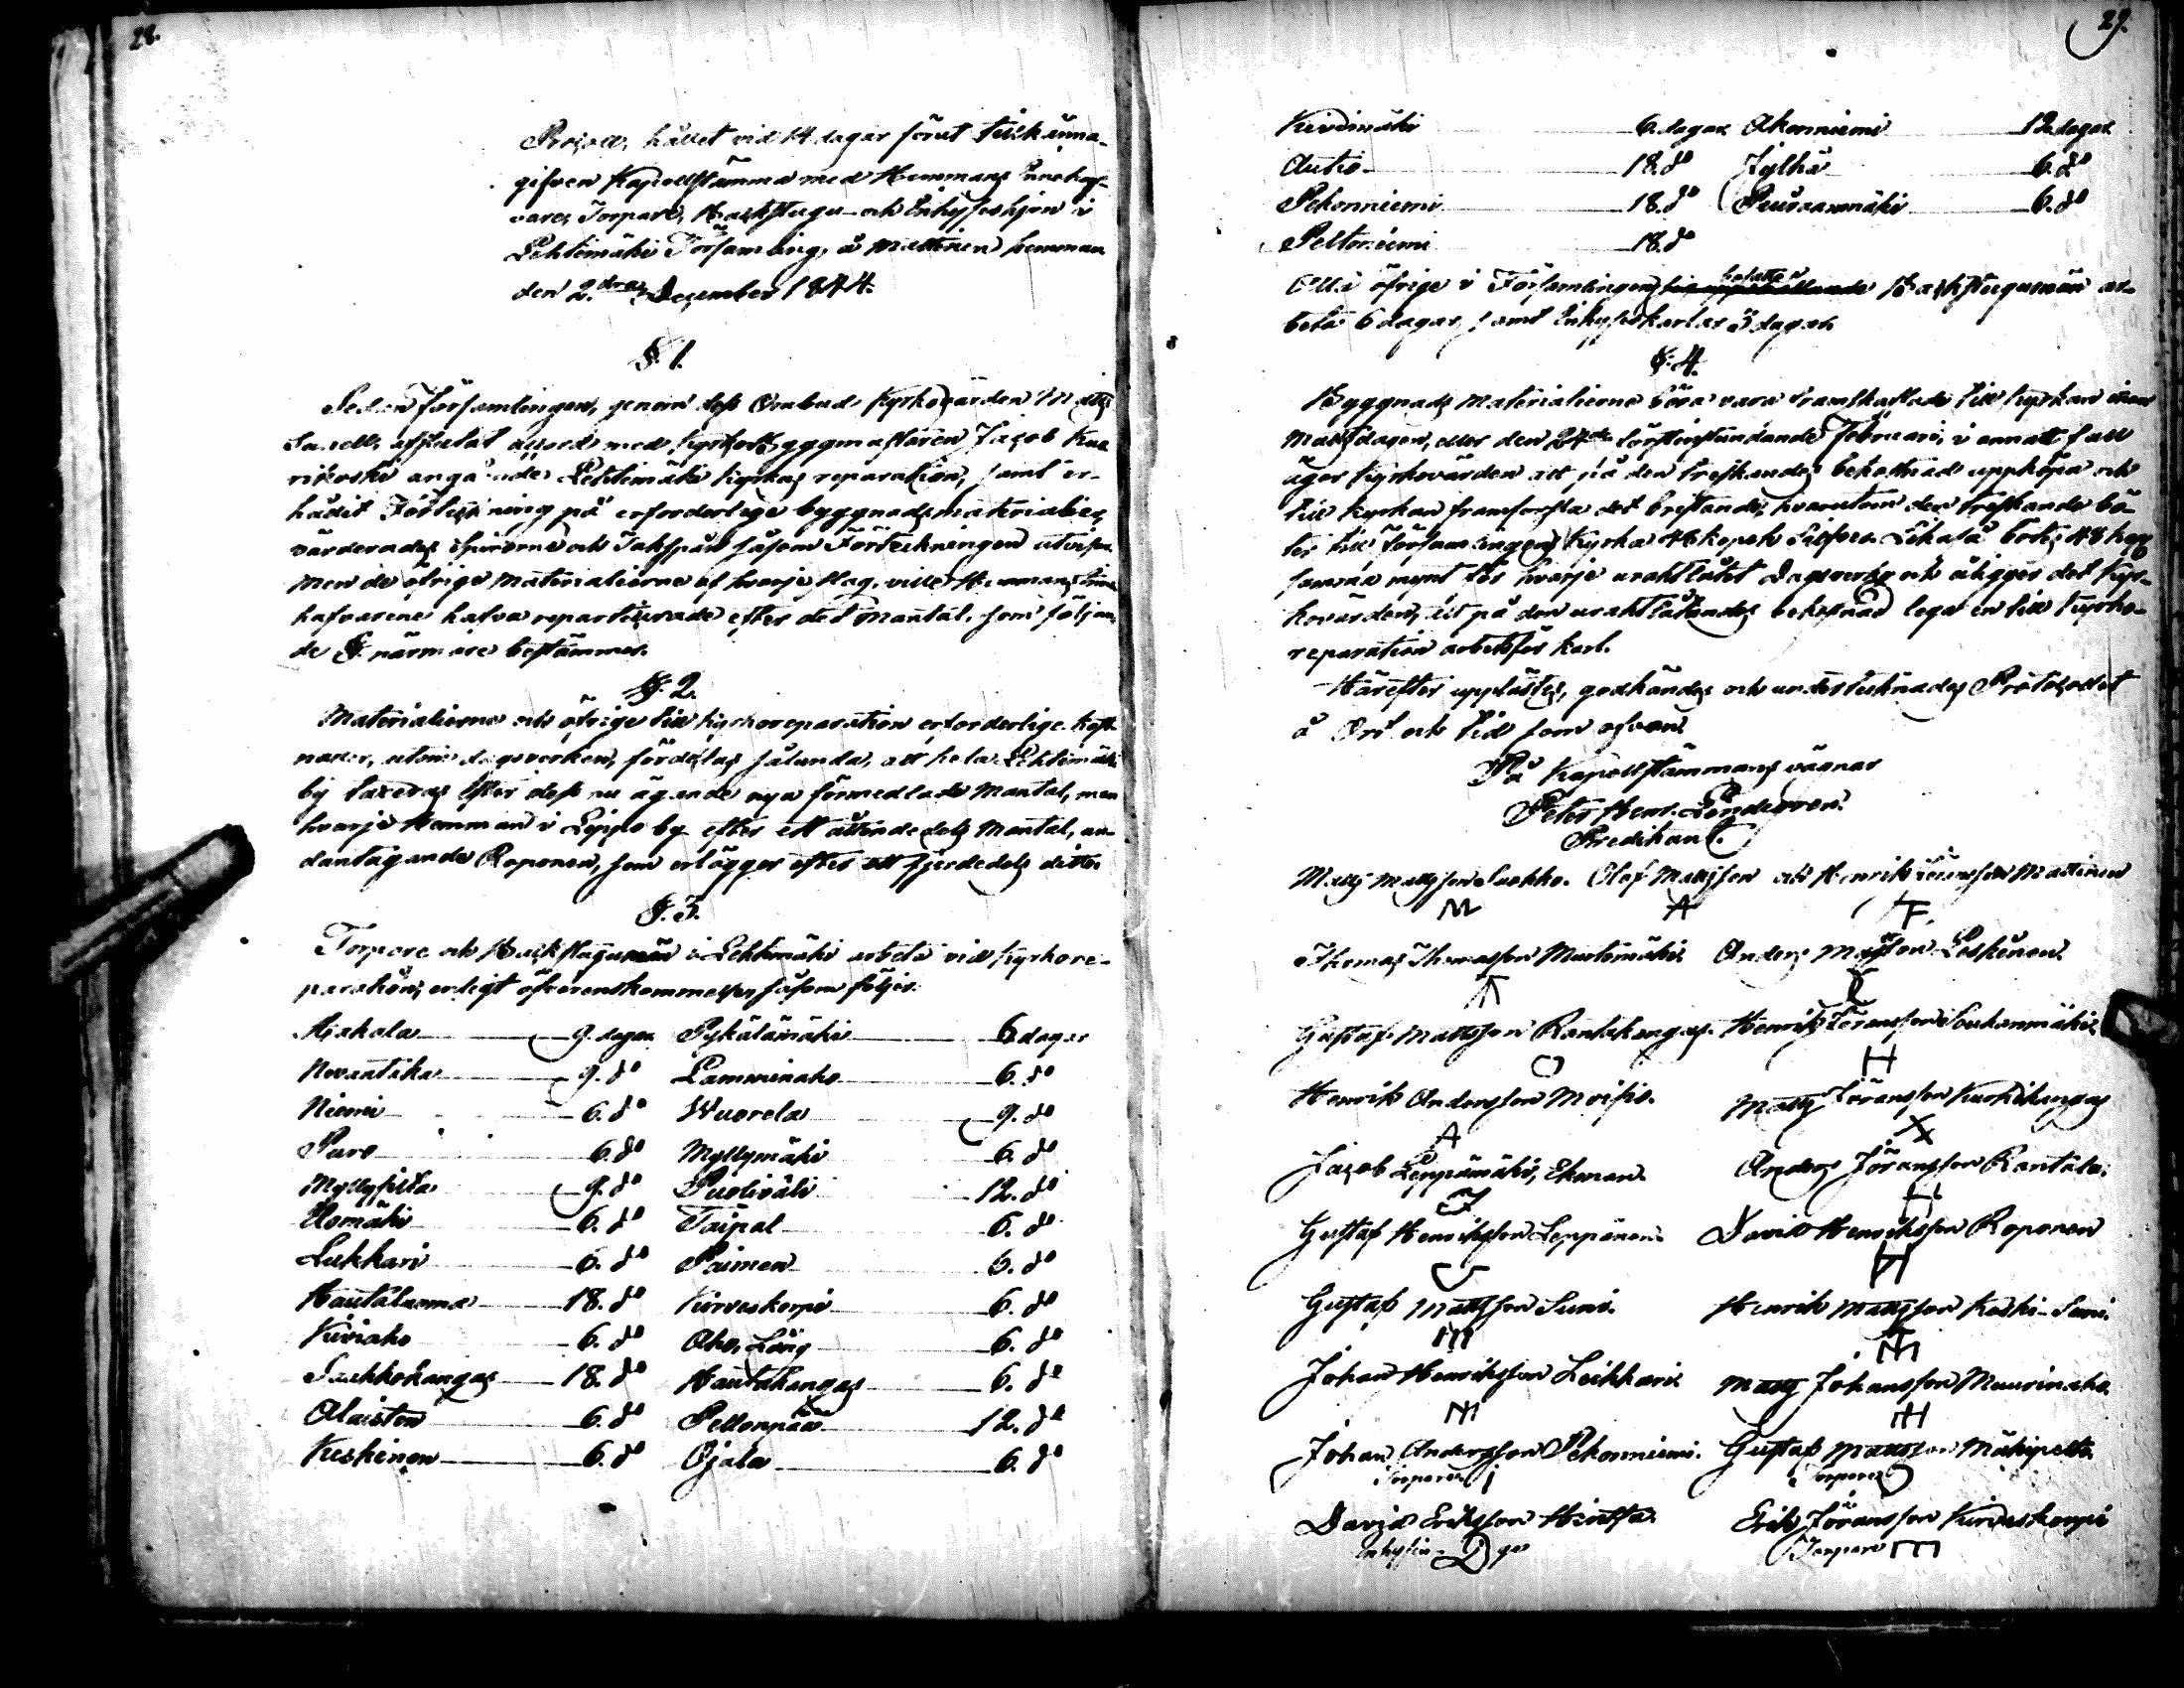 28.
Protocoll, hållet vid 14 dagar förut tillkänna-
gifven Kapellstämma med Hemmans Innehaf-
vare, Torpare, Backstugu- och Inhyseshjon i
Lehtimäki Församling, å Mattinen hemman
den 2:dra December 1844.
§ 1.
Sedan Församlingen, genom dess Ombud Kyrkovärden Matts
afslutat accord med Kyrkobyggmästaren Jacob Kuo-
rikoski angående Lehtimäki Kyrkas reparation, samt er-
hållit Förteckning på erforderlige byggnadsmaterialier,
värderades och Takspån såsom Förteckningen utvisar
men de öfrige Materialierne af hvarje slag, ville Hemmans Inne-
hafvarene hafva reparterade efter det Mantal, som följan-
de §. närmare bestämmer.
§. 2.
Materialierne och öfrige till kyrkoreparation erforderlige kost-
nader, utom dagsverken, fördelas sålunda, att hela Lehtimäki
by taxeras efter dess nu ägande nya förmedlade Mantal, men
hvarje Hemman i Leppo by efter ett åttondedels Mantal, un-
dantagande Roponen, som erlägger efter ett fjerdedels ditto.
§. 3.
Torpare och Backstugumän i Lehtimäki arbeta vid kyrkore-
paration, enligt öfverenskommelse, såsom följer:
Hakola 9. dagar Pykälämäki 6 dagar
9. do Lamminaho 6. do
Niemi 6. do Wuorela 9. do
Puro 6. do Myllymäki 6. do
9. do Puoliväli 12. do
6. do Taipal 6. do
Lukkari 6. do Paimen 6. do
Hautaluoma 18. do Kirveskorpi 6. do
Kiviaho 6. do Aho, Lång 6. do
18. do Hautakangas 6. do
6. do Peltonpää 12. do
Keskinen 6. do Ojala 6. do
29.
Kivimäki 6. dagar Akonniemi 12 dagar
Autio 18. do Jylhä 6. do
Pekonniemi 18. do 6. do
Peltoniemi 18. do
Alla öfrige i Församlingen befattade Backstugumän ar-
beta 6 dagar, samt Inhyseskarlar 3 dagar.
§. 4.
Byggnads Materialierne böra vara framskaffade till kyrkan innan
Mattsdagen, eller den 24de förstinstundande Februari, i annat fall
äger kyrkovärden att på den treskandes bekostnad uppköpa och
till kyrkan framforsla det bristande, hvarutom den treskande bö-
ter till Församlingens Kyrka 48 kopek Silfver. Likaså böte 48 kop.
samma mynt för hvarje uraktlåtet Dagsverke och åligger det Kyr-
kovärden, att på den uraktlåtandes bekostnad lega en till kyrko-
reparation arbetsför karl.
Härefter upplästes, godkändes och undertecknades Protocollet
å Ort och tid som ofvan.
På Kapellstämmans vägnar
Peter Henr. Lindegren.
Predikant.
Matts Mattsson Suokko. Olof Mattsson och Henrik Mattinen
M A F
Thomas Thomasson Anders Mattsson Leskinen
Gustaf Mattsson Rantakangas. Henrik Göransson
H
Henrik Andersson Moisio. Matts Göransson
A X
Jacob Leppämäki, Ekman. Anders Göransson Rantala.
H
Gustaf Henriksson Leppänen. David Henriksson Roponen
H
Gustaf Mattsson Suni. Henrik Mattsson Koski-Suni.
Johan Henriksson Leikkari Matts Johansson Muurinaho
Johan Andersson Pekonniemi. Gustaf Mattsson Mäkipelto
Torpare Torpare
David Eriksson Erik Göransson Kirveskorpi
Inhysing Torpare